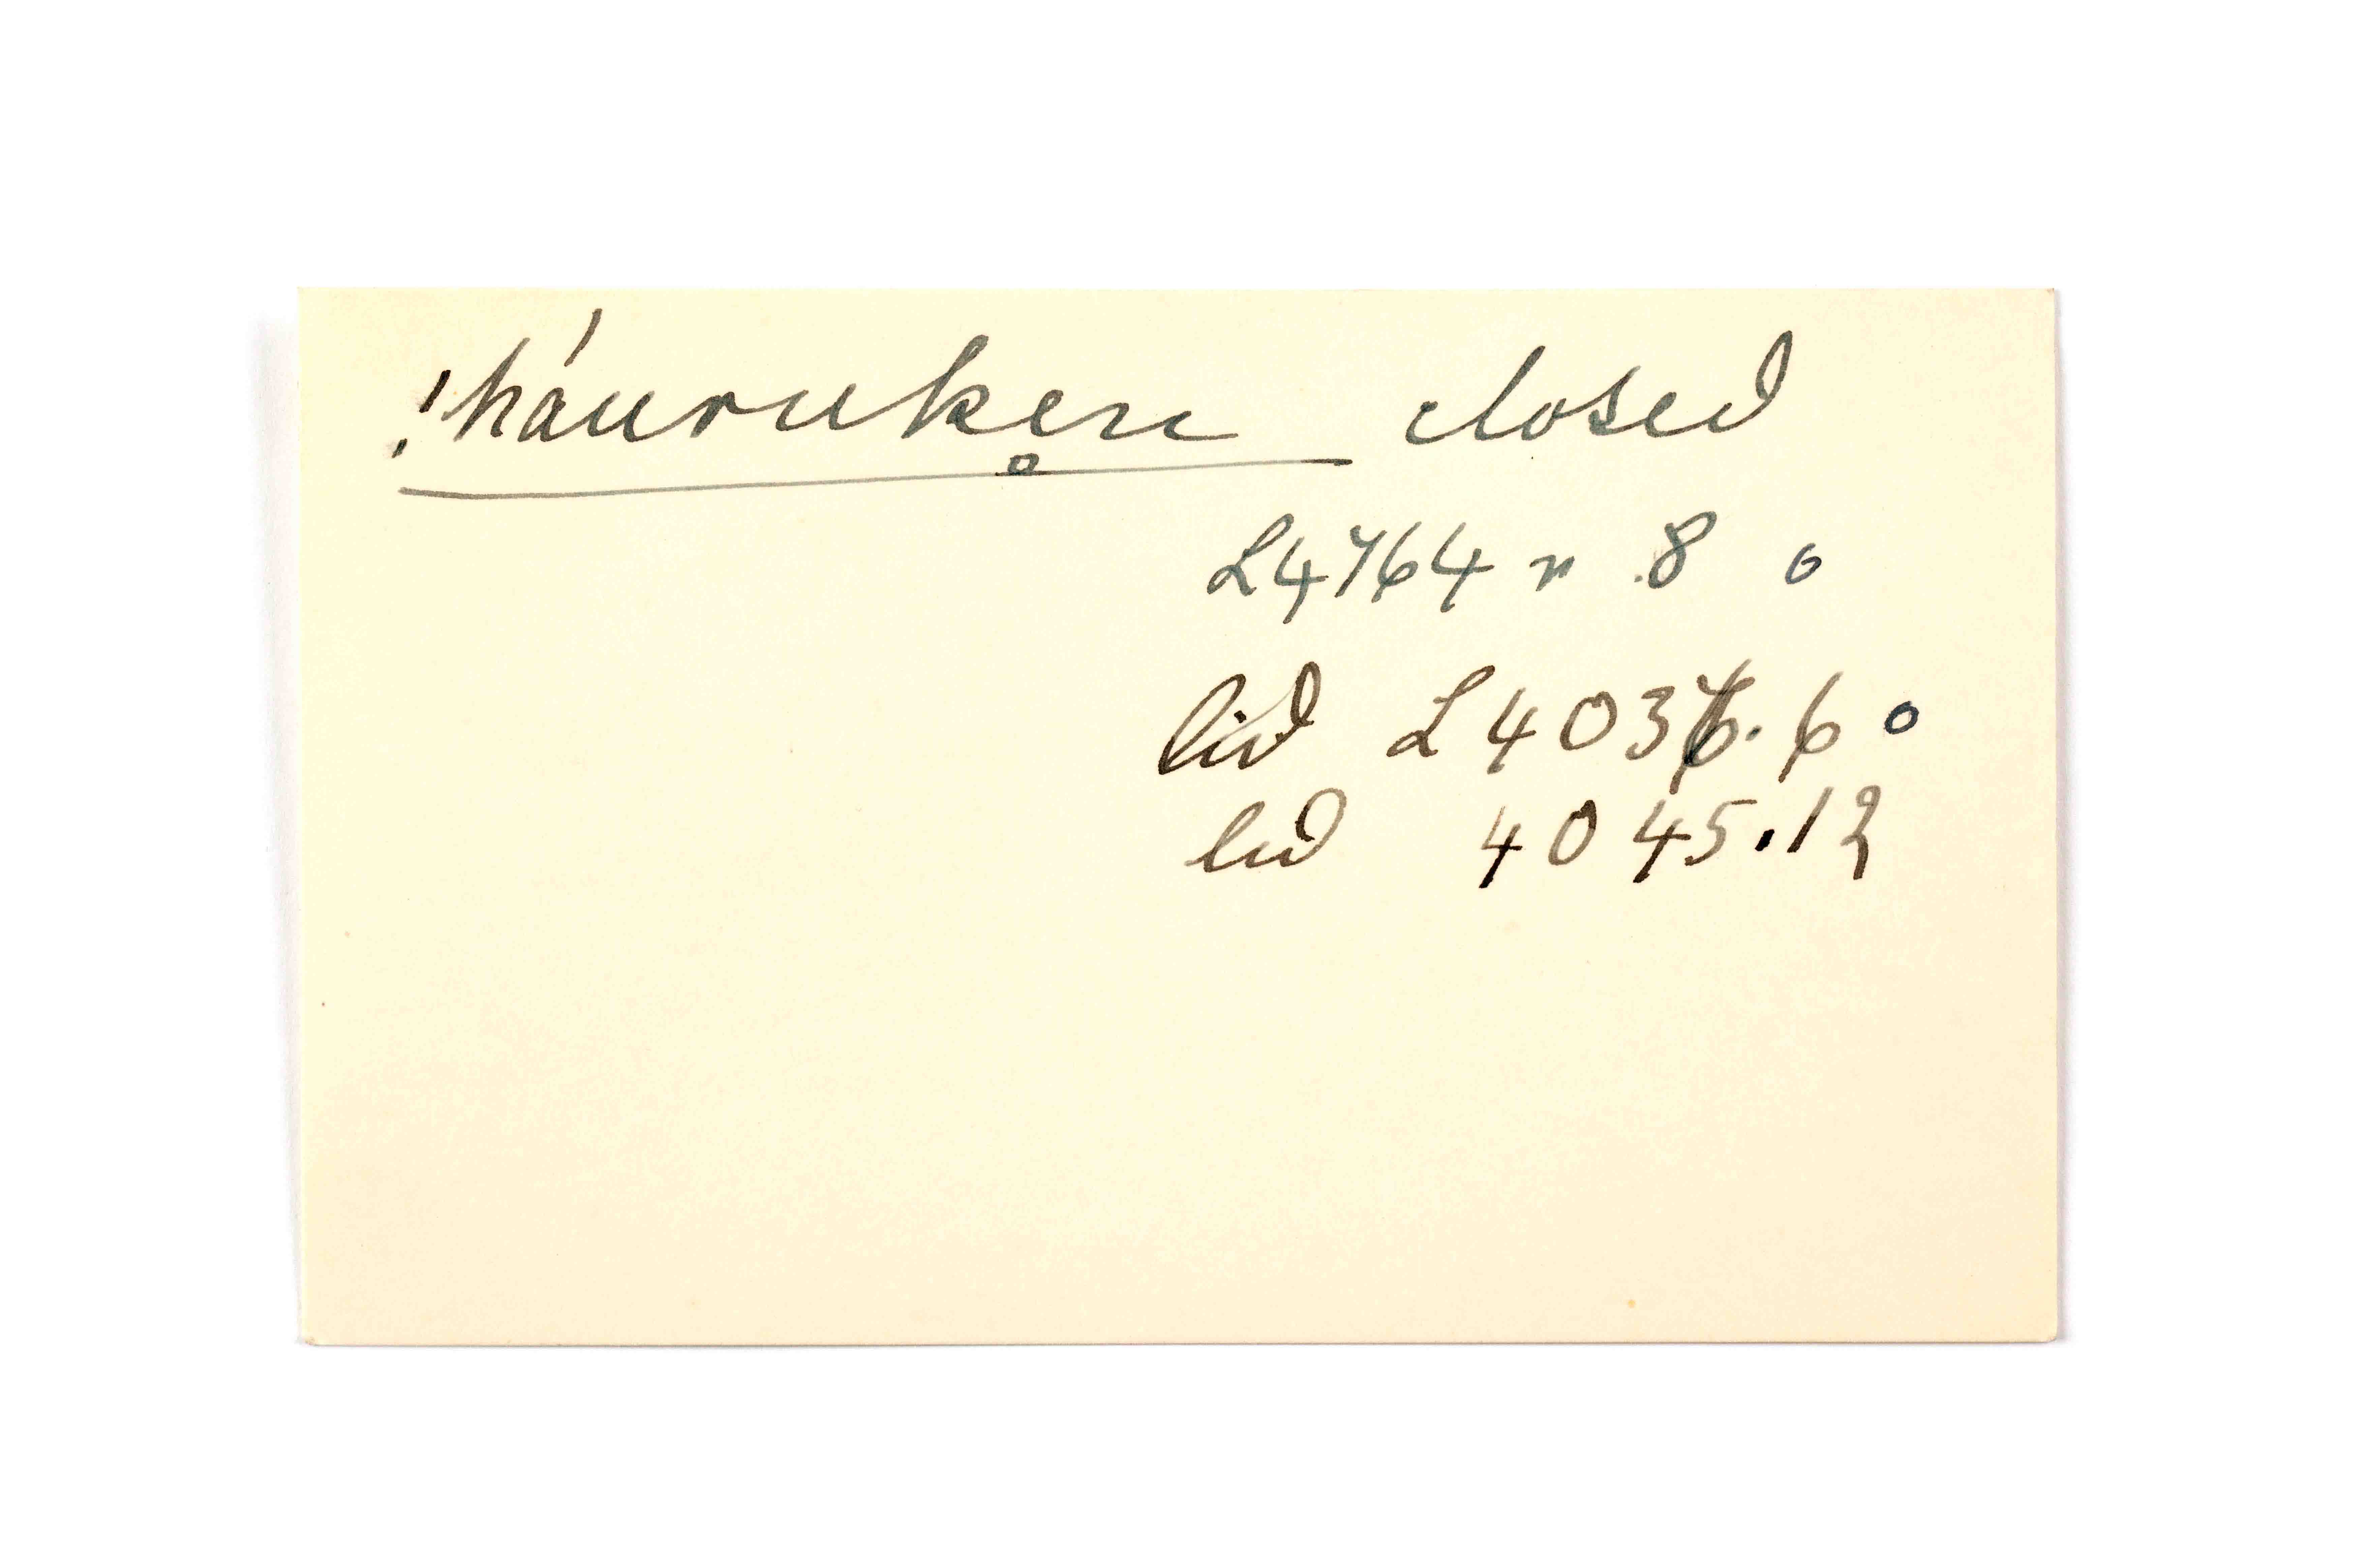 !háuruken̥ closed
L4764 r 8 o
lid L4036.6 o
lid 4045.12